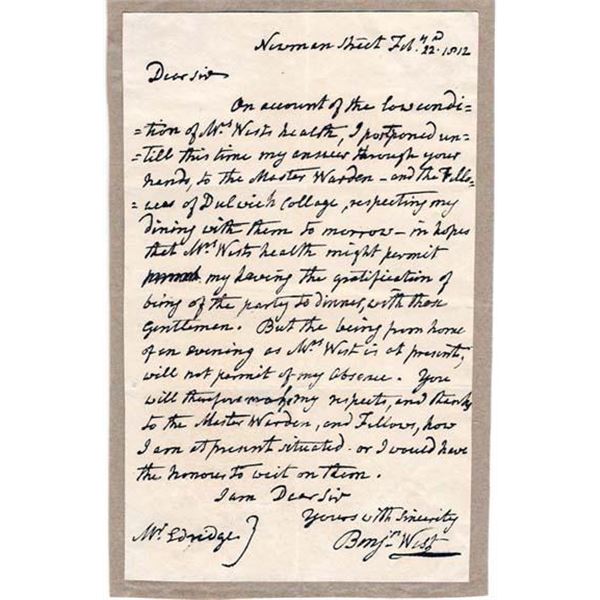 Newman Street Feb.y 22.d 1812
Dear Sir
On account of the low condi=
=tion of Mrs Wests health, I postponed un=
=till this time my answer through your
hands, to the Master Warden - and the Fello=
=wes of Dulwich Collage, respecting my
dining with them to morrow - in hopes
that Mrs Wests health might permit
my having the gratification of
being of the party to dinner, with those
Gentlemen. But the being from home
of an evening as Mrs West is at present,
will not permit of my absence. You
will therefore make my respects, and thanks
to the Master Warden, and Fellows, how
I am at present situated - or I would have
the honour to wait on them.
I am Dear Sir
Yours with Sincerity
Mr Edridge} Benjn West